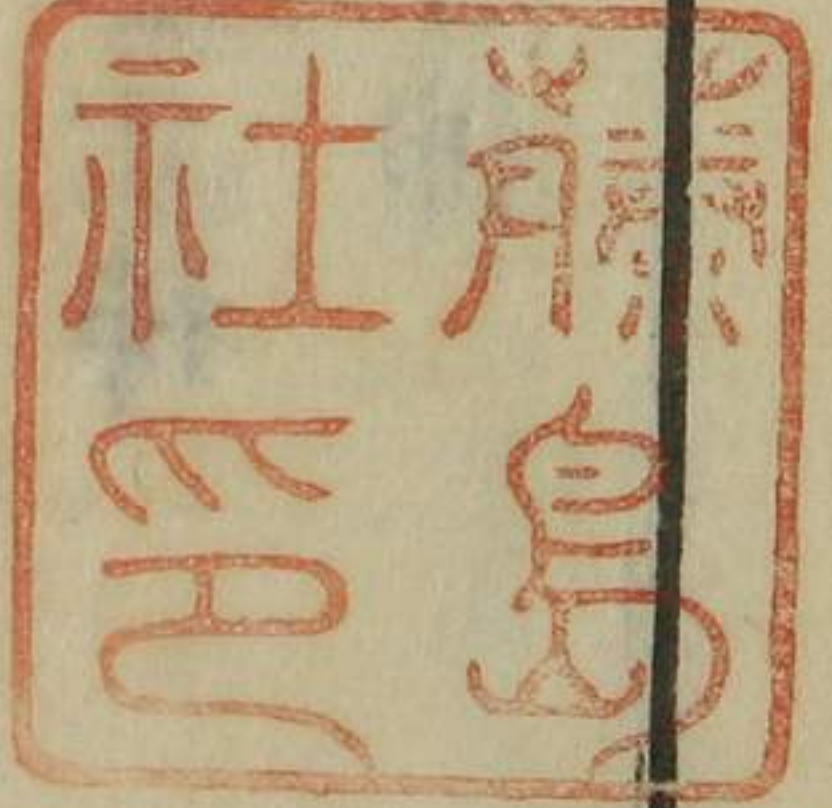 藤島
社印